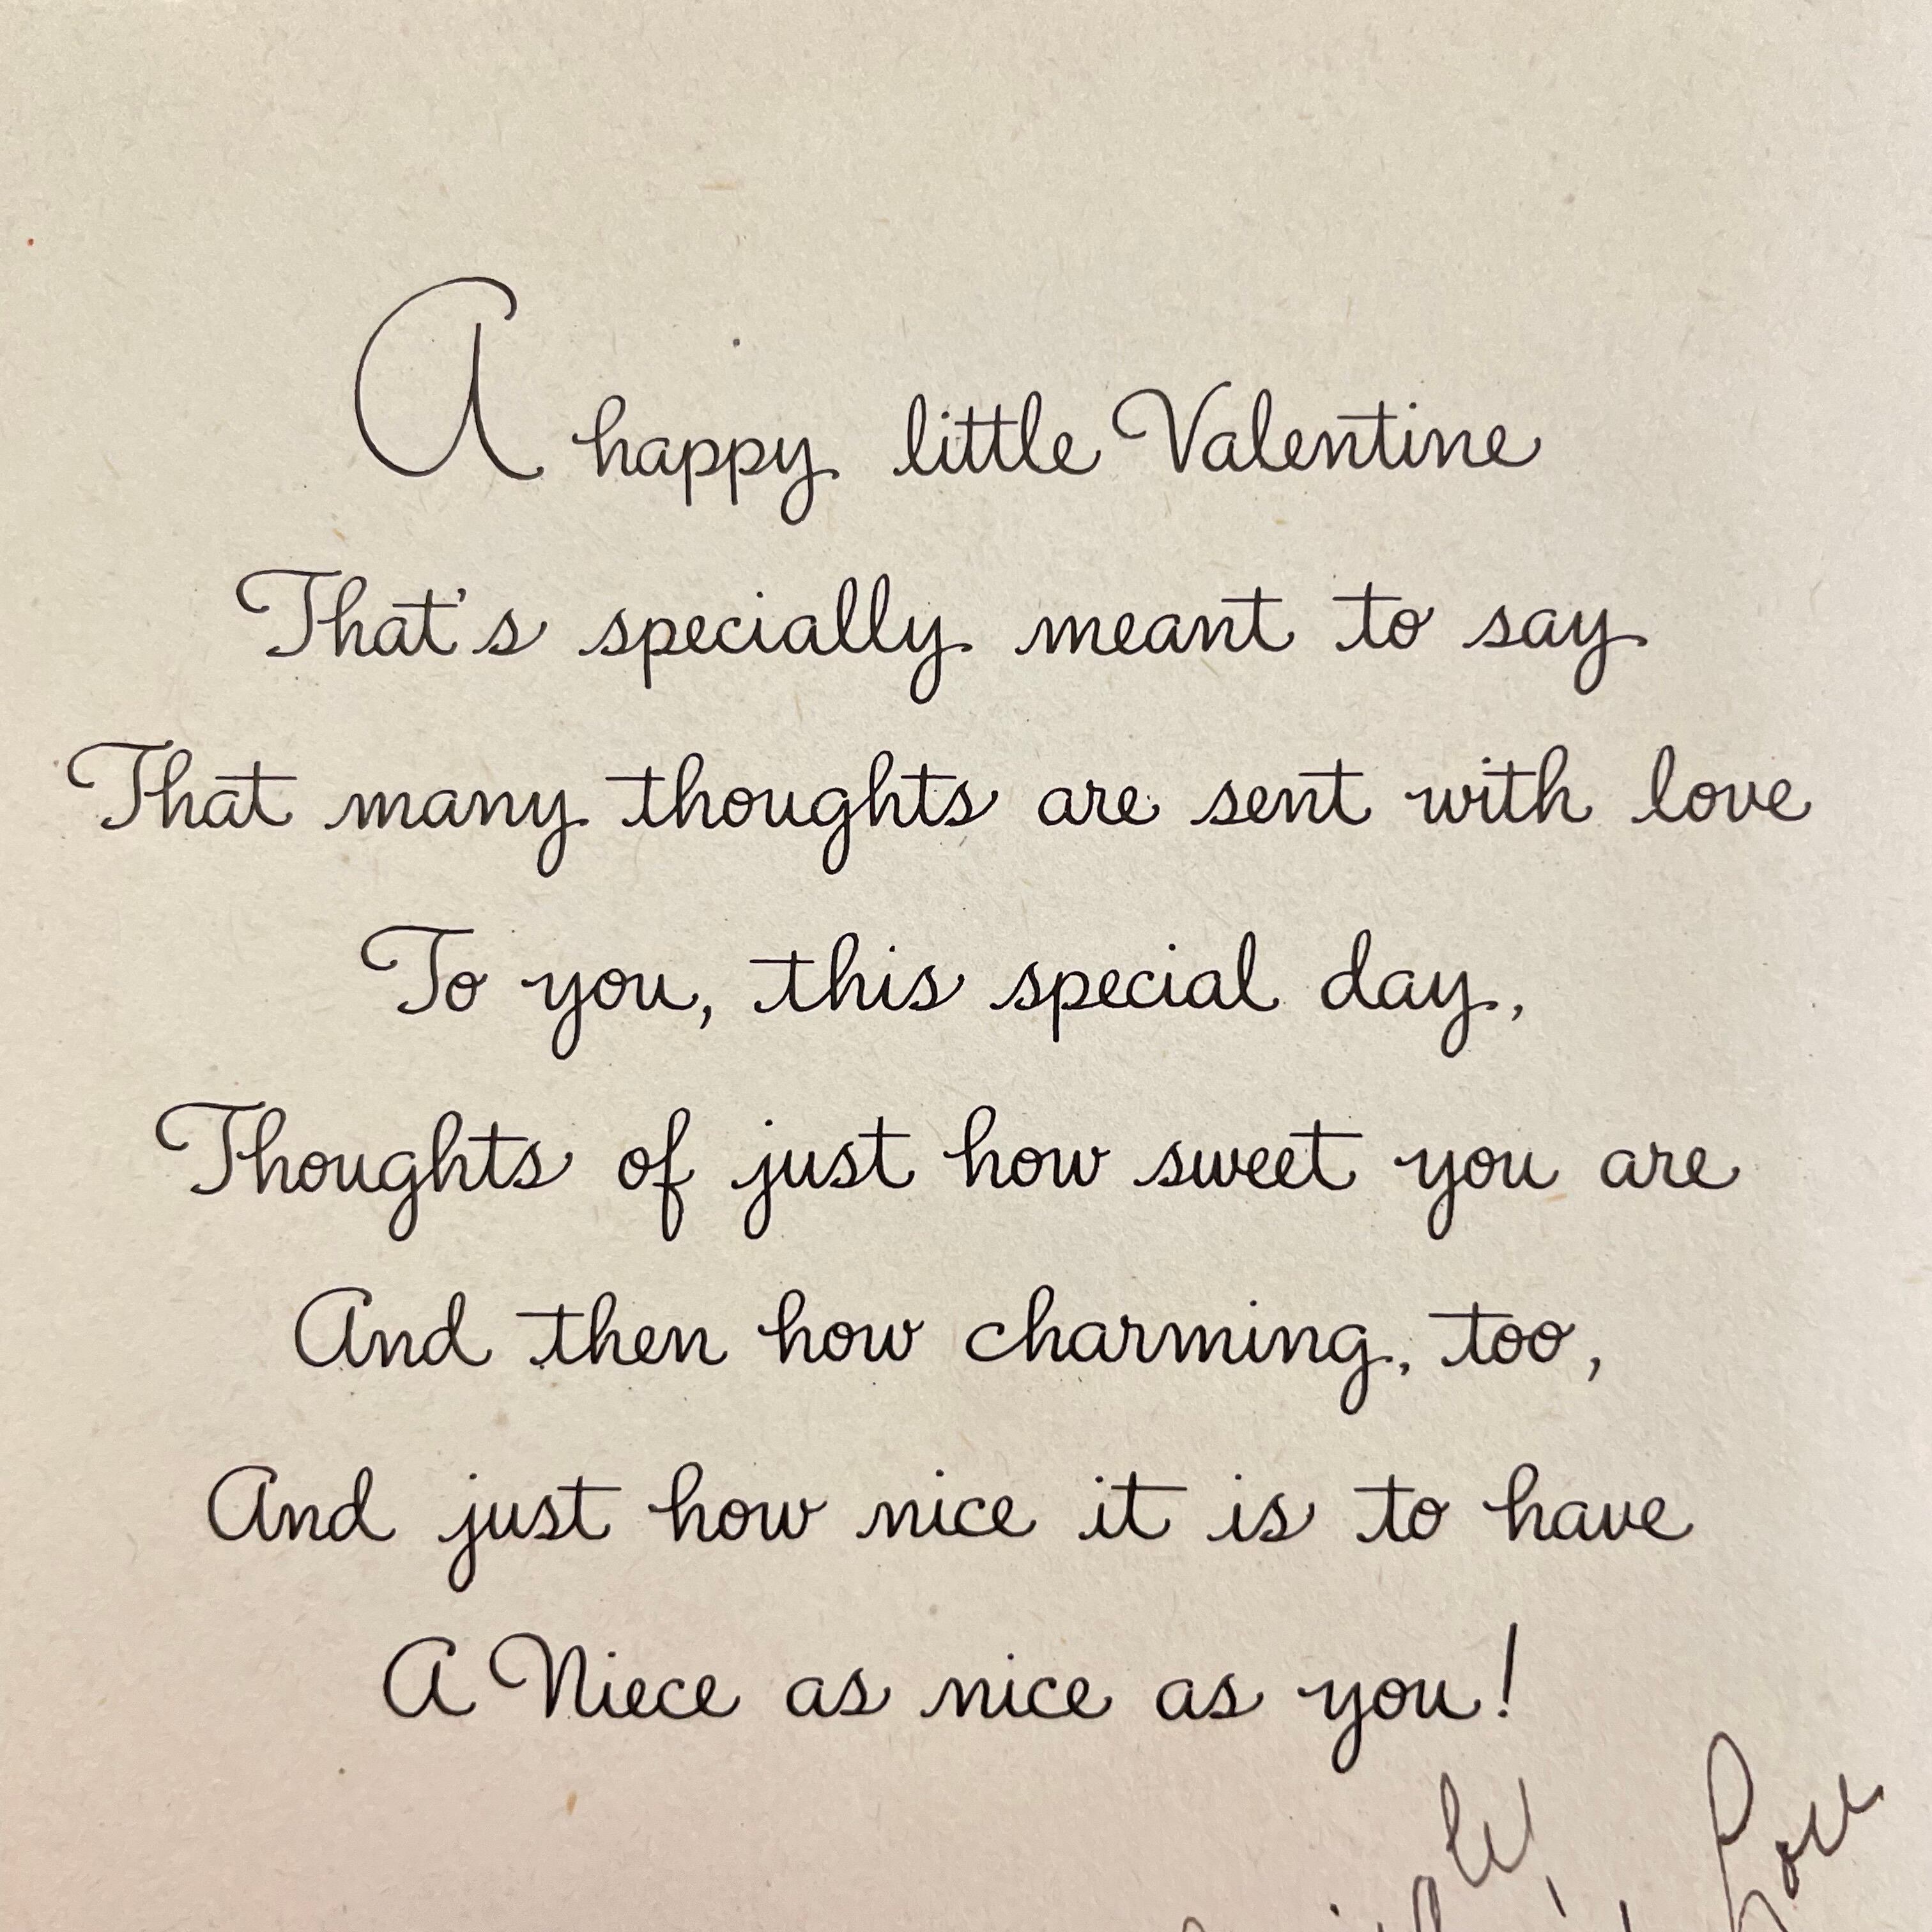 A happy little Valentine
That's specially meant to say
That many thoughts are sent with love
To you, this special day,
Thoughts of just how sweet you are
And then how charming, too,
And just how nice it is to have
A Niece as nice as you!
Love